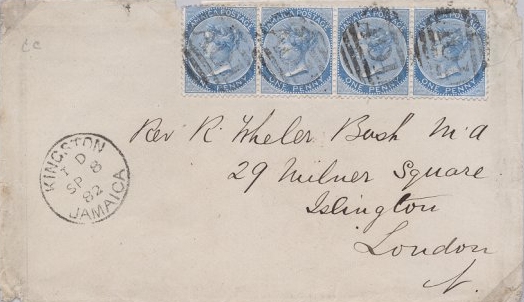 JAMAICA POSTAGE JAMAICA POSTAGE JAMAICA POSTAGE JAMAICA POSTAGE
ONE PENNY ONE PENNY ONE PENNY ONE PENNY
KINGSTON
D
SP 8
82
JAMAICA
Rev R. Wheler Bush M.A
29 Milner Square
Islington
London
N.